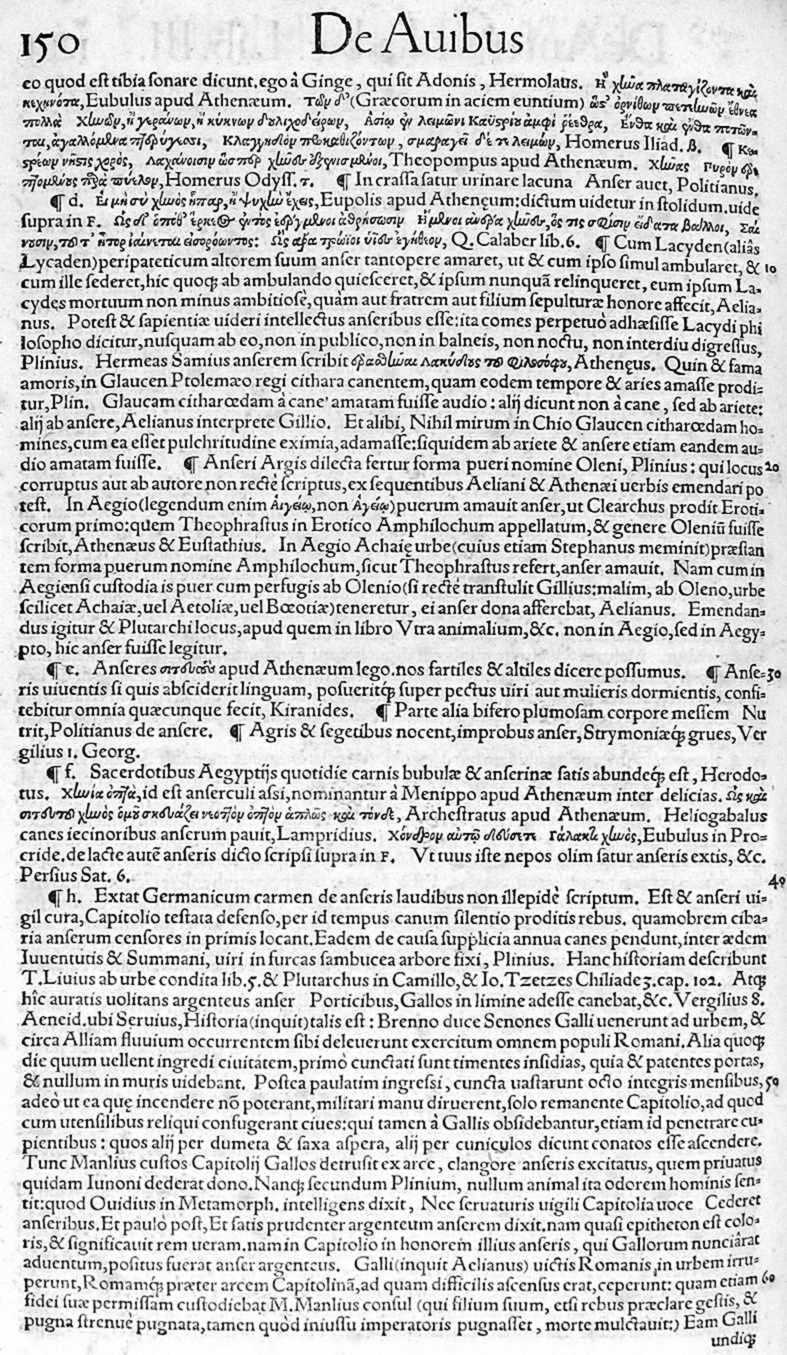 150 De Auibus
eo quod est tibia sonare dicunt. ego à Ginge, qui sit Adonis, Hermolaus. Ἢ χῆνα πλαταγίζοντα καὶ
κεχηνότα, Eubulus apud Athenæum. Τῶν δ' (Græcorum in aciem euntium) ὥς' ὀρνίθων πετεηνῶν ἔθνεα
πολλὰ Χηνῶν, ἢ γεράνων, ἢ κύκνων δουλιχοδείρων, Ἀσίῳ ἐν λειμῶνι Καϋστρίου ἀμφὶ ῥέεθρα, Ἔνθα καὶ ἔνθα ποτῶν-
ται, ἀγαλλόμενα πτερύγεσσι, Κλαγγηδὸν προκαθιζόντων, σμαραγεῖ δέ τε λειμών, Homerus Iliad. β. ¶ Κε-
χορός, Λαχάνοισιν ὥσπερ Theopompus apud Athenæum. Χῆνας
παρὰ πύελον, Homerus Odyss. τ. ¶ In crassa satur urinare lacuna Anser auet, Politianus.
¶ d. Εἰ μὴ σὺ χηνὸς ἧπαρ, ἢ ψυχὴν ἔχεις, Eupolis apud Athenęum: dictum uidetur in stolidum. uide
supra in F. Ὡς δ' Ἥμενοι ἄνδρα ὅς τις σφίσιν εἴδατα βάλλοι,
Ὣς ἄρα Τρώϊοι υἷες ἐγήθεον, Q. Calaber lib. 6. ¶ Cum Lacyden (aliâs
Lycaden) peripateticum altorem suum anser tantopere amaret, ut & cum ipso simul ambularet, & 10
cum ille sederet, hic quoq; ab ambulando quiesceret, & ipsum nunquã relinqueret, eum ipsum La-
cydes mortuum non minus ambitiosè, quàm aut fratrem aut filium sepulturæ honore affecit, Aelia-
nus. Potest & sapientiæ uideri intellectus anseribus esse: ita comes perpetuò adhæsisse Lacydi phi
losopho dicitur, nusquam ab eo, non in publico, non in balneis, non noctu, non interdiu digressus,
Plinius. Hermeas Samius anserem scribit ἐρασθῆναι Λακύδους τοῦ φιλοσόφου, Athenęus. Quin & fama
amoris, in Glaucen Ptolemæo regi cithara canentem, quam eodem tempore & aries amasse prodi-
tur, Plin. Glaucam citharœdam à cane amatam fuisse audio: alij dicunt non à cane, sed ab ariete:
alij ab ansere, Aelianus interprete Gillio. Et alibi, Nihil mirum in Chio Glaucen citharœdam ho-
mines, cum ea esset pulchritudine eximia, adamasse: siquidem ab ariete & ansere etiam eandem au-
dio amatam fuisse. ¶ Anseri Argis dilecta fertur forma pueri nomine Oleni, Plinius: qui locus 20
corruptus aut ab autore non rectè scriptus, ex sequentibus Aeliani & Athenæi uerbis emendari po
test. In Aegio (legendum enim Αἰγείῳ, non Ἀγείῳ) puerum amauit anser, ut Clearchus prodit Eroti-
corum primo: quem Theophrastus in Erotico Amphilochum appellatum, & genere Oleniũ fuisse
scribit, Athenæus & Eustathius. In Aegio Achaię urbe (cuius etiam Stephanus meminit) præstan
tem forma puerum nomine Amphilochum, sicut Theophrastus refert, anser amauit. Nam cum in
Aegiensi custodia is puer cum perfugis ab Olenio (si rectè transtulit Gillius: malim, ab Oleno, urbe
scilicet Achaiæ, uel Aetoliæ, uel Bœotiæ) teneretur, ei anser dona afferebat, Aelianus. Emendan-
dus igitur & Plutarchi locus, apud quem in libro Vtra animalium, &c. non in Aegio, sed in Aegy-
pto, hic anser fuisse legitur.
¶ e. Anseres σιτευτοὺς apud Athenæum lego. nos fartiles & altiles dicere possumus. ¶ Anse- 30
ris uiuentis si quis absciderit linguam, posueritq; super pectus uiri aut mulieris dormientis, confi-
tebitur omnia quæcunque fecit, Kiranides. ¶ Parte alia bifero plumosam corpore messem Nu
trit, Politianus de ansere. ¶ Agris & segetibus nocent, improbus anser, Strymoniæq; grues, Ver
gilius 1. Georg.
¶ f. Sacerdotibus Aegyptijs quotidie carnis bubulæ & anserinæ satis abundeq; est, Herodo-
tus. Χηνία ὀπτὰ, id est anserculi assi, nominantur à Menippo apud Athenæum inter delicias. Ὡς καὶ
σιτευτοῦ χηνὸς ὁμοῦ σκεύαζε νεοττὸν ὀπτὸν ἁπλῶς καὶ τόνδε, Archestratus apud Athenæum. Heliogabalus
canes iecinoribus anserum pauit, Lampridius. Χόνδρον αὐτῷ δεύσετε γάλακτι χηνὸς, Eubulus in Pro-
cride. de lacte autẽ anseris dicto scripsi supra in F. Vt tuus iste nepos olim satur anseris extis, &c.
Persius Sat. 6. 40
¶ h. Extat Germanicum carmen de anseris laudibus non illepidè scriptum. Est & anseri ui-
gil cura, Capitolio testata defenso, per id tempus canum silentio proditis rebus. quamobrem ciba-
ria anserum censores in primis locant. Eadem de causa supplicia annua canes pendunt, inter ædem
Iuuentutis & Summani, uiri in furcas sambucea arbore fixi, Plinius. Hanc historiam describunt
T. Liuius ab urbe condita lib. 5. & Plutarchus in Camillo, & Io. Tzetzes Chiliade 3. cap. 102. Atq;
hîc auratis uolitans argenteus anser Porticibus, Gallos in limine adesse canebat, &c. Vergilius 8.
Aeneid. ubi Seruius, Historia (inquit) talis est: Brenno duce Senones Galli uenerunt ad urbem, &
circa Alliam fluuium occurrentem sibi deleuerunt exercitum omnem populi Romani. Alia quoq;
die quum uellent ingredi ciuitatem, primò cunctati sunt timentes insidias, quia & patentes portas,
& nullum in muris uidebant. Postea paulatim ingressi, cuncta uastarunt octo integris mensibus, 50
adeò ut ea quę incendere nõ poterant, militari manu diruerent, solo remanente Capitolio, ad quod
cum utensilibus reliqui confugerant ciues: qui tamen à Gallis obsidebantur, etiam id penetrare cu-
pientibus: quos alij per dumeta & saxa aspera, alij per cuniculos dicunt conatos esse ascendere.
Tunc Manlius custos Capitolij Gallos detrusit ex arce, clangore anseris excitatus, quem priuatus
quidam Iunoni dederat dono. Nanq; secundum Plinium, nullum animal ita odorem hominis sen-
tit: quod Ouidius in Metamorph. intelligens dixit, Nec seruaturis uigili Capitolia uoce Cederet
anseribus. Et paulò post, Et satis prudenter argenteum anserem dixit. nam quasi epitheton est colo-
ris, & significauit rem ueram. nam in Capitolio in honorem illius anseris, qui Gallorum nunciârat
aduentum, positus fuerat anser argenteus. Galli (inquit Aelianus) uictis Romanis in urbem irru-
perunt, Romamq; præter arcem Capitolinã, ad quam difficilis ascensus erat, ceperunt: quam etiam 60
fidei suæ permissam custodiebat M. Manlius consul (qui filium suum, etsi rebus præclare gestis, &
pugna strenuè pugnata, tamen quòd iniussu imperatoris pugnasset, morte mulctauit:) Eam Galli
undiq;